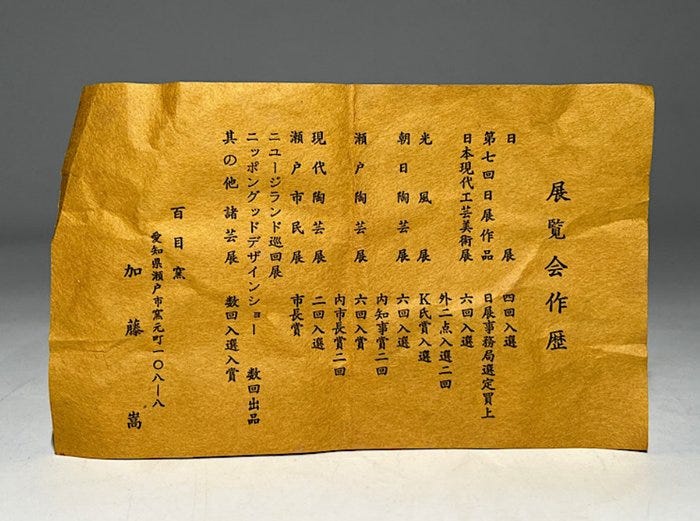 展覧会作歴
日展 四回入選
第七回日展作品 日展事務局選定買上
日本現代工芸美術展 六回入選
外二点入選二回
光風展 K氏賞入選
朝日陶芸展 六回入選
内知事賞二回
瀬戸陶芸展 六回入賞
内市長賞二回
現代陶芸展 二回入選
瀬戸市民展 市長賞
ニュージランド巡回展
ニッポングッドデザインショー 数回出品
其の他諸芸展 数回入選入賞
百目窯
愛知県瀬戸市窯元町一〇八―八
加藤嵩